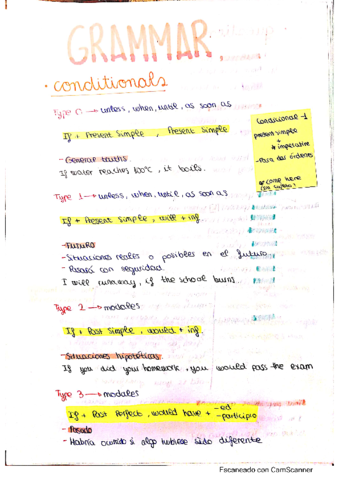 GRAMMAR
· conditionals
Type 0 → unless, when, until, as soon as
If + Present Simple , Present Simple
- General truths
If water reaches 100°C, it boils.
Condicional -1
present simple
+
imperative
-Para dar órdenes
Type 1 → unless, when, until, as soon as
If + Present Simple, will + inf
- FUTURO
- Situaciones reales o posibles en el futuro
- Pasará con seguridad.
I will runaway, if the school burns...
Type 2 → modales
If + Past Simple, would + inf
- Situaciones hipotéticas
If you did your homework, you would pass the exam
Type 3 → modales
If + Past Perfect, would have + -ed
-participio
- Pasado
- Habría ocurrido si algo hubiese sido diferente
Escaneado con CamScanner